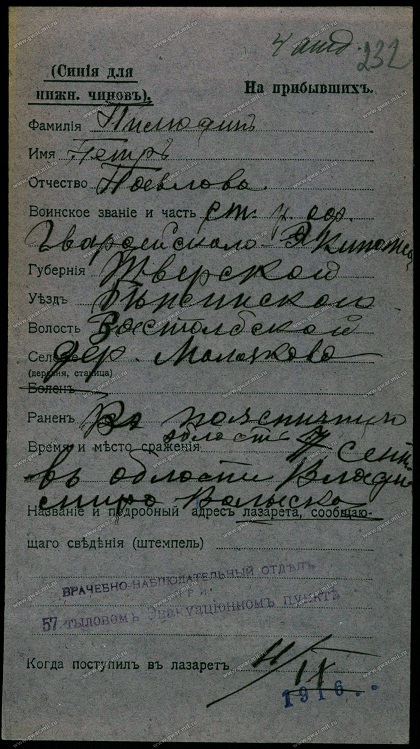 4 отд. 232
(Синія для
нижн. чиновъ).
На прибывшихъ.
Фамилія Пилюгинъ
Имя Петръ
Отчество Павлова
Воинское званіе и часть ст. у. оф.
Гвардейскаго Экипажа
Губернія Тверской
Уѣздъ
Волость
Село дер. Малахово
(деревня, станица)
Боленъ
Раненъ Въ поясничную
область
Время и мѣсто сраженія 7 сент
въ области Влади
міра Волынска
Названіе и подробный адресъ лазарета, сообщаю-
щаго свѣдѣнія (штемпель)
ВРАЧЕБНО-НАБЛЮДАТЕЛЬНЫЙ ОТДѢЛЪ
ПРИ
57 тыловомъ Эвакуаціонномъ пунктѣ
Когда поступилъ въ лазаретъ 11/IX
1916